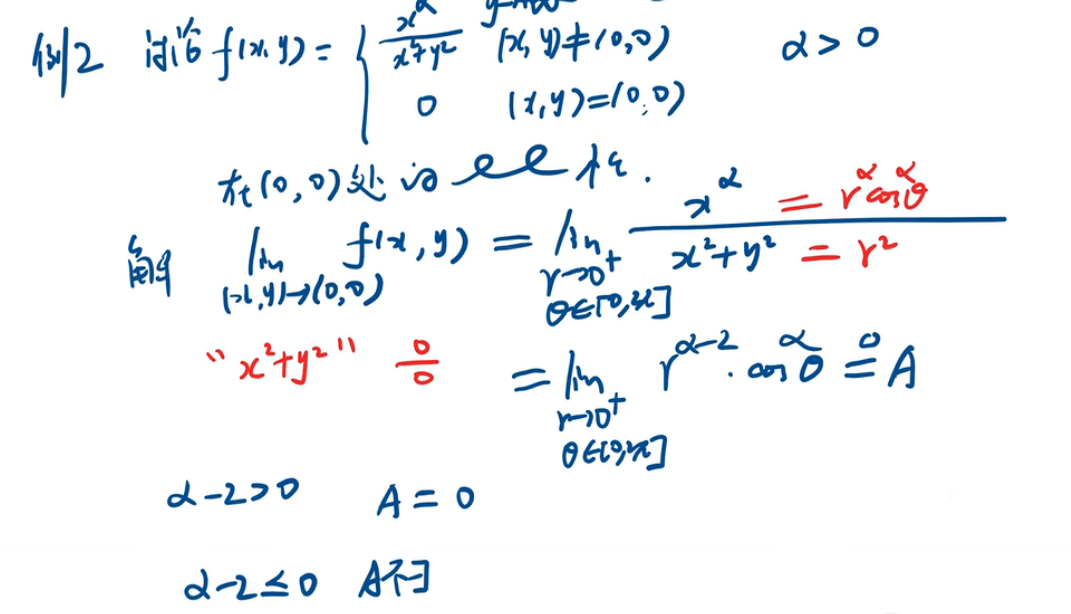 例2 讨论 f(x,y) = { x^α / (x²+y²) (x,y)≠(0,0) α > 0
0 (x,y)=(0,0)
在(0,0)处的 性.
解 lim_{(x,y)→(0,0)} f(x,y) = lim_{r→0⁺ θ∈[0,2π]} x^α = r^α cos^α θ / x²+y² = r²
"x²+y²" 0/0 = lim_{r→0⁺ θ∈[0,2π]} r^{α-2} · cos^α θ = A
α-2>0 A = 0
α-2≤0 A不∃